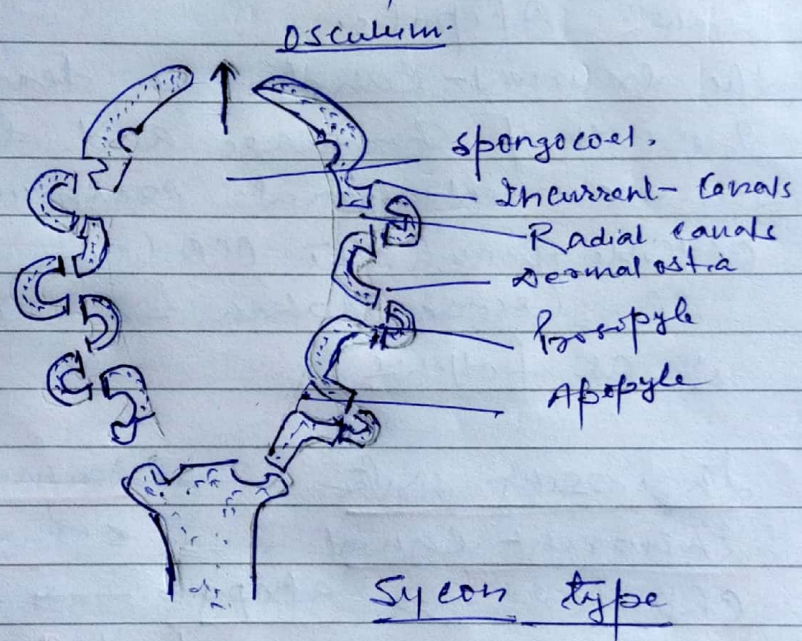 Osculum.
Spongocoel.
Incurrent- Canals
Radial canals
Dermal ostia
Prosopyle
Apopyle
Sycon type